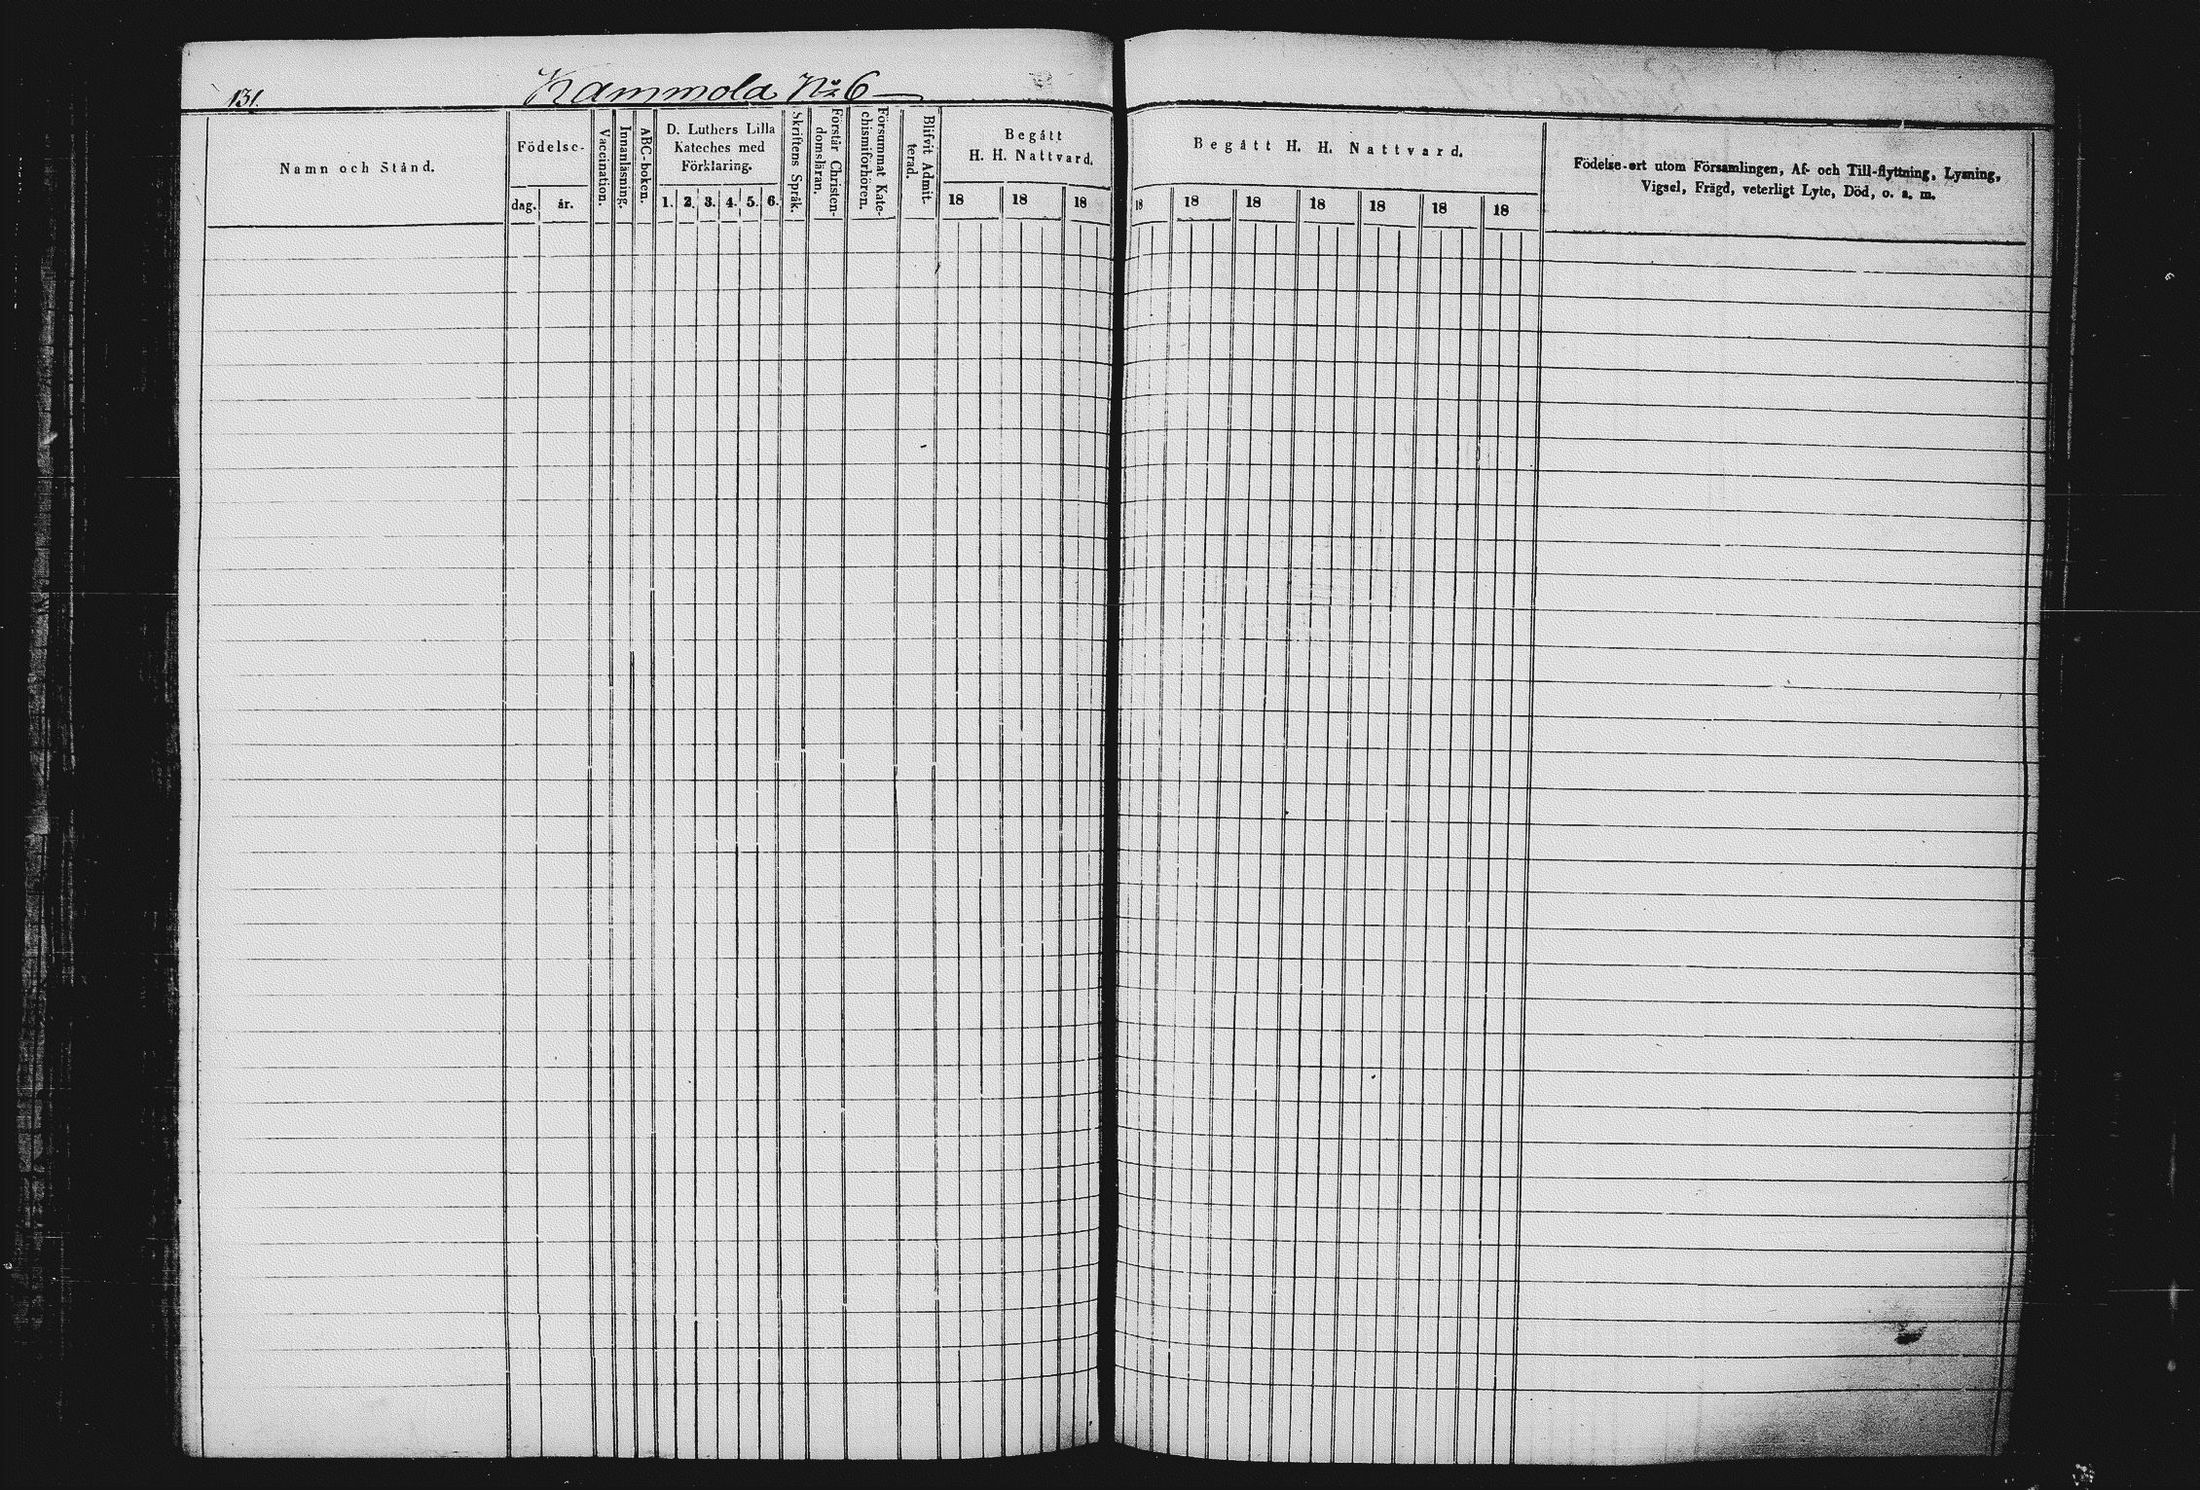 131.
Kammola No 6
Namn och Stånd.
Födelse-
dag. år.
Vaccination.
Innanläsning.
ABC-boken.
D. Luthers Lilla
Kateches med
Förklaring.
1. 2. 3. 4. 5. 6.
Skriftens Språk.
Förstår Christen-
domsläran.
Försummat Kate-
chismiförhören.
Blifvit Admit-
terad.
Begått
H. H. Nattvard.
18 18 18
Begått H. H. Nattvard.
18 18 18 18 18 18 18
Födelse-ort utom Församlingen, Af- och Till-flyttning, Lysning,
Vigsel, Frägd, veterligt Lyte, Död, o. a. m.